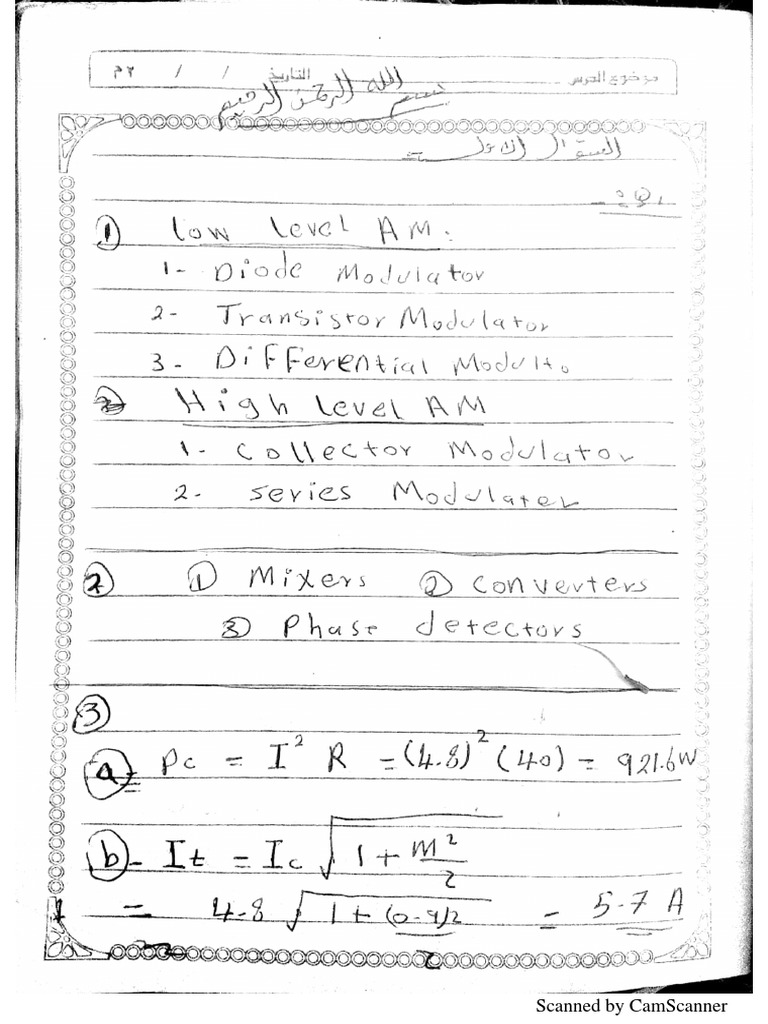 موضوع الدرس التاريخ / / ٢م
بسم الله الرحمن الرحيم
السؤال الاول =
① Low Level AM:
1- Diode Modulator
2- Transistor Modulator
3- Differential Modulto
② High Level AM
1- Collector Modulator
2- series Modulater
② ① Mixers ② Converters
③ Phase detectors
③
ⓐ Pc = I² R = (4.8)² (40) = 921.6W
ⓑ- It = Ic √(1 + m²/2)
= 4.8 √(1 + (0.9)2/2) = 5.7 A
Scanned by CamScanner